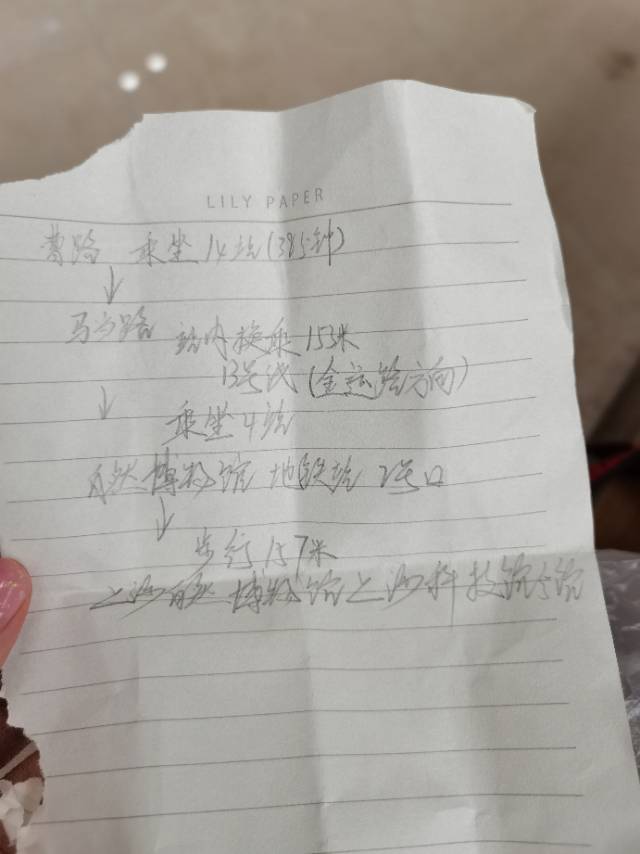 LILY PAPER
曹路 乘坐14站(38分钟)
↓
马当路 站内换乘153米
13号线(金运路方向)
↓
乘坐4站
自然博物馆 地铁站 2号口
↓
步行157米
上海自然博物馆上海科技馆分馆